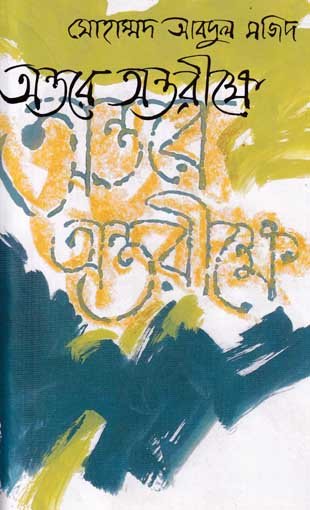 মোহাম্মদ আবদুল মজিদ
অন্তরে অন্তরীক্ষে
অন্তরে
অন্তরীক্ষে